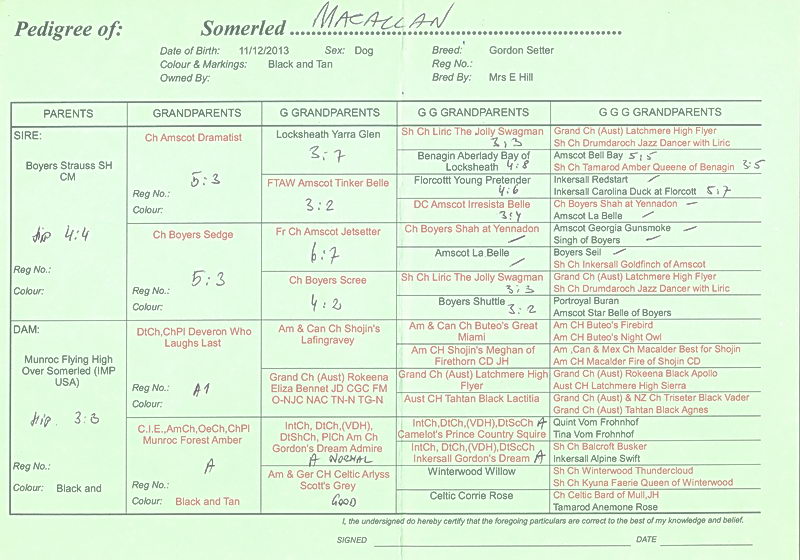 Pedigree of: Somerled MACALLAN
Date of Birth: 11/12/2013 Sex: Dog Breed: Gordon Setter
Colour & Markings: Black and Tan Reg No.:
Owned By: Bred By: Mrs E Hill
PARENTS GRANDPARENTS G GRANDPARENTS G G GRANDPARENTS G G G GRANDPARENTS
SIRE:
Boyers Strauss SH
CM
Hip 4:4
Reg No.:
Colour:
DAM:
Munroc Flying High
Over Somerled (IMP
USA)
Hip 3:3
Reg No.:
Colour: Black and
Ch Amscot Dramatist
5:3
Reg No.:
Colour:
Ch Boyers Sedge
5:3
Reg No.:
Colour:
DtCh,ChPl Deveron Who
Laughs Last
Reg No.: A1
Colour:
C.I.E.,AmCh,OeCh,ChPl
Munroc Forest Amber
A
Reg No.:
Colour: Black and Tan
Locksheath Yarra Glen
3:7
FTAW Amscot Tinker Belle
3:2
Fr Ch Amscot Jetsetter
6:7
Ch Boyers Scree
4:2
Am & Can Ch Shojin's
Lafingravey
Grand Ch (Aust) Rokeena
Eliza Bennet JD CGC FM
O-NJC NAC TN-N TG-N
IntCh, DtCh,(VDH),
DtShCh, PlCh Am Ch
Gordon's Dream Admire
A NORMAL
Am & Ger CH Celtic Arlyss
Scott's Grey
GOOD
Sh Ch Liric The Jolly Swagman
3:3
Benagin Aberlady Bay of
Locksheath 4:8
Florcottt Young Pretender
4:6
DC Amscot Irresista Belle
3:4
Ch Boyers Shah at Yennadon
Amscot La Belle
Sh Ch Liric The Jolly Swagman
3:3
Boyers Shuttle 3:2
Am & Can Ch Buteo's Great
Miami
Am CH Shojin's Meghan of
Firethorn CD JH
Grand Ch (Aust) Latchmere High
Flyer
Aust CH Tahtan Black Lactitia
IntCh, DtCh,(VDH),DtScCh A
Camelot's Prince Country Squire
IntCh, DtCh,(VDH),DtScCh
Inkersall Gordon's Dream A
Winterwood Willow
Celtic Corrie Rose
Grand Ch (Aust) Latchmere High Flyer
Sh Ch Drumdaroch Jazz Dancer with Liric
Amscot Bell Bay 5:5
Sh Ch Tamarod Amber Queene of Benagin 3:5
Inkersall Redstart
Inkersall Carolina Duck at Florcott 5:7
Ch Boyers Shah at Yennadon
Amscot La Belle
Amscot Georgia Gunsmoke
Singh of Boyers
Boyers Seil
Sh Ch Inkersall Goldfinch of Amscot
Grand Ch (Aust) Latchmere High Flyer
Sh Ch Drumdaroch Jazz Dancer with Liric
Portroyal Buran
Amscot Star Belle of Boyers
Am CH Buteo's Firebird
Am CH Buteo's Night Owl
Am ,Can & Mex Ch Macalder Best for Shojin
Am CH Macalder Fire of Shojin CD
Grand Ch (Aust) Rokeena Black Apollo
Aust CH Latchmere High Sierra
Grand Ch (Aust) & NZ Ch Triseter Black Vader
Grand Ch (Aust) Tahtan Black Agnes
Quint Vom Frohnhof
Tina Vom Frohnhof
Sh Ch Balcroft Busker
Inkersall Alpine Swift
Sh Ch Winterwood Thundercloud
Sh Ch Kyuna Faerie Queen of Winterwood
Ch Celtic Bard of Mull,JH
Tamarod Anemone Rose
I, the undersigned do hereby certify that the foregoing particulars are correct to the best of my knowledge and belief.
SIGNED DATE